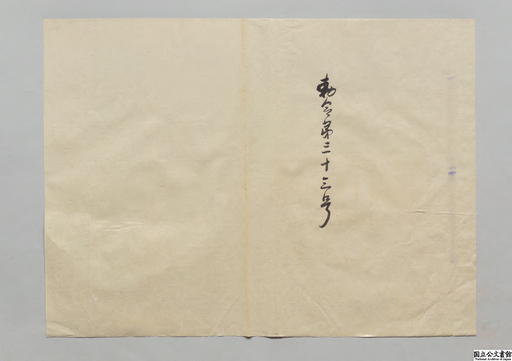 勅令第二十三号
国立公文書館
National Archives of Japan